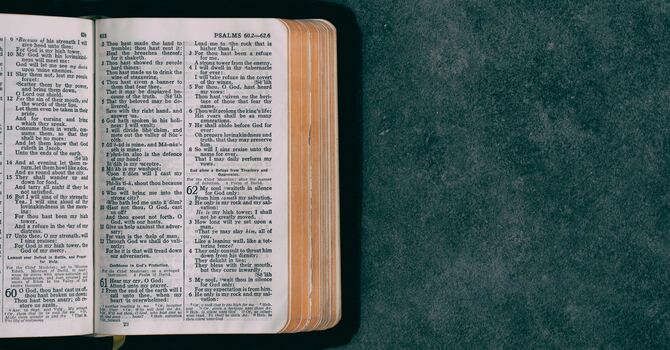 9 Because of his strength I will
give heed unto thee;
For God is my high tower.
10 My God with his lovingkind-
ness will meet me:
God will let me see my de-
sire upon mine enemies.
11 Slay them not, lest my people
forget:
Scatter them by thy power,
and bring them down,
O Lord our shield.
12 For the sin of their mouth, and
the words of their lips,
Let them even be taken in their
pride,
And for cursing and lying
which they speak.
13 Consume them in wrath, con-
sume them, so that they
shall be no more:
And let them know that God
ruleth in Jacob,
Unto the ends of the earth.
14 And at evening let them re-
turn, let them howl like a dog,
And go round about the city.
15 They shall wander up and
down for food,
And tarry all night if they be
not satisfied.
16 But I will sing of thy strength;
Yea, I will sing aloud of thy
lovingkindness in the morn-
ing:
For thou hast been my high
tower,
And a refuge in the day of my
distress.
17 Unto thee, O my strength, will
I sing praises:
For God is my high tower, the
God of my mercy.
60 O God, thou hast cast us off,
thou hast broken us down;
Thou hast been angry; oh re-
store us again.
PSALMS 60.2—62.6
2 Thou hast made the land to
tremble; thou hast rent it:
Heal the breaches thereof; for
it shaketh.
3 Thou hast showed thy people
hard things:
Thou hast made us to drink the
wine of staggering.
4 Thou hast given a banner to
them that fear thee,
That it may be displayed be-
cause of the truth. [Selah
5 That thy beloved may be de-
livered,
Save with thy right hand, and
answer us.
6 God hath spoken in his holi-
ness: I will exult;
I will divide Shechem, and
mete out the valley of Suc-
coth.
7 Gilead is mine, and Manas-
seh is mine;
Ephraim also is the defence
of my head;
Judah is my sceptre.
8 Moab is my washpot;
Upon Edom will I cast my
shoe:
Philistia, shout thou because
of me.
9 Who will bring me into the
strong city?
Who hath led me unto Edom?
10 Hast not thou, O God, cast
us off?
And thou goest not forth, O
God, with our hosts.
11 Give us help against the adver-
sary;
For vain is the help of man.
12 Through God we shall do val-
iantly;
For he it is that will tread down
our adversaries.
Confidence in God's Protection.
61 Hear my cry, O God;
Attend unto my prayer.
2 From the end of the earth will I
call unto thee, when my
heart is overwhelmed:
Lead me to the rock that is
higher than I.
3 For thou hast been a refuge
for me,
A strong tower from the enemy.
4 I will dwell in thy tabernacle
for ever:
I will take refuge in the covert
of thy wings. [Selah
5 For thou, O God, hast heard
my vows:
Thou hast given me the heri-
tage of those that fear thy
name.
6 Thou wilt prolong the king's life;
His years shall be as many
generations.
7 He shall abide before God for
ever:
Oh prepare lovingkindness and
truth, that they may preserve
him.
8 So will I sing praise unto thy
name for ever,
That I may daily perform my
vows.
God alone a Refuge from Treachery and
Oppression.
For the Chief Musician; after the manner
of Jeduthun. A Psalm of David.
62 My soul waiteth in silence
for God only:
From him cometh my salvation.
2 He only is my rock and my sal-
vation:
He is my high tower; I shall
not be greatly moved.
3 How long will ye set upon a
man,
That ye may slay him, all of
you,
Like a leaning wall, like a tot-
tering fence?
4 They only consult to thrust him
down from his dignity;
They delight in lies;
They bless with their mouth,
but they curse inwardly.
[Selah
5 My soul, wait thou in silence
for God only;
For my expectation is from him.
6 He only is my rock and my sal-
vation: